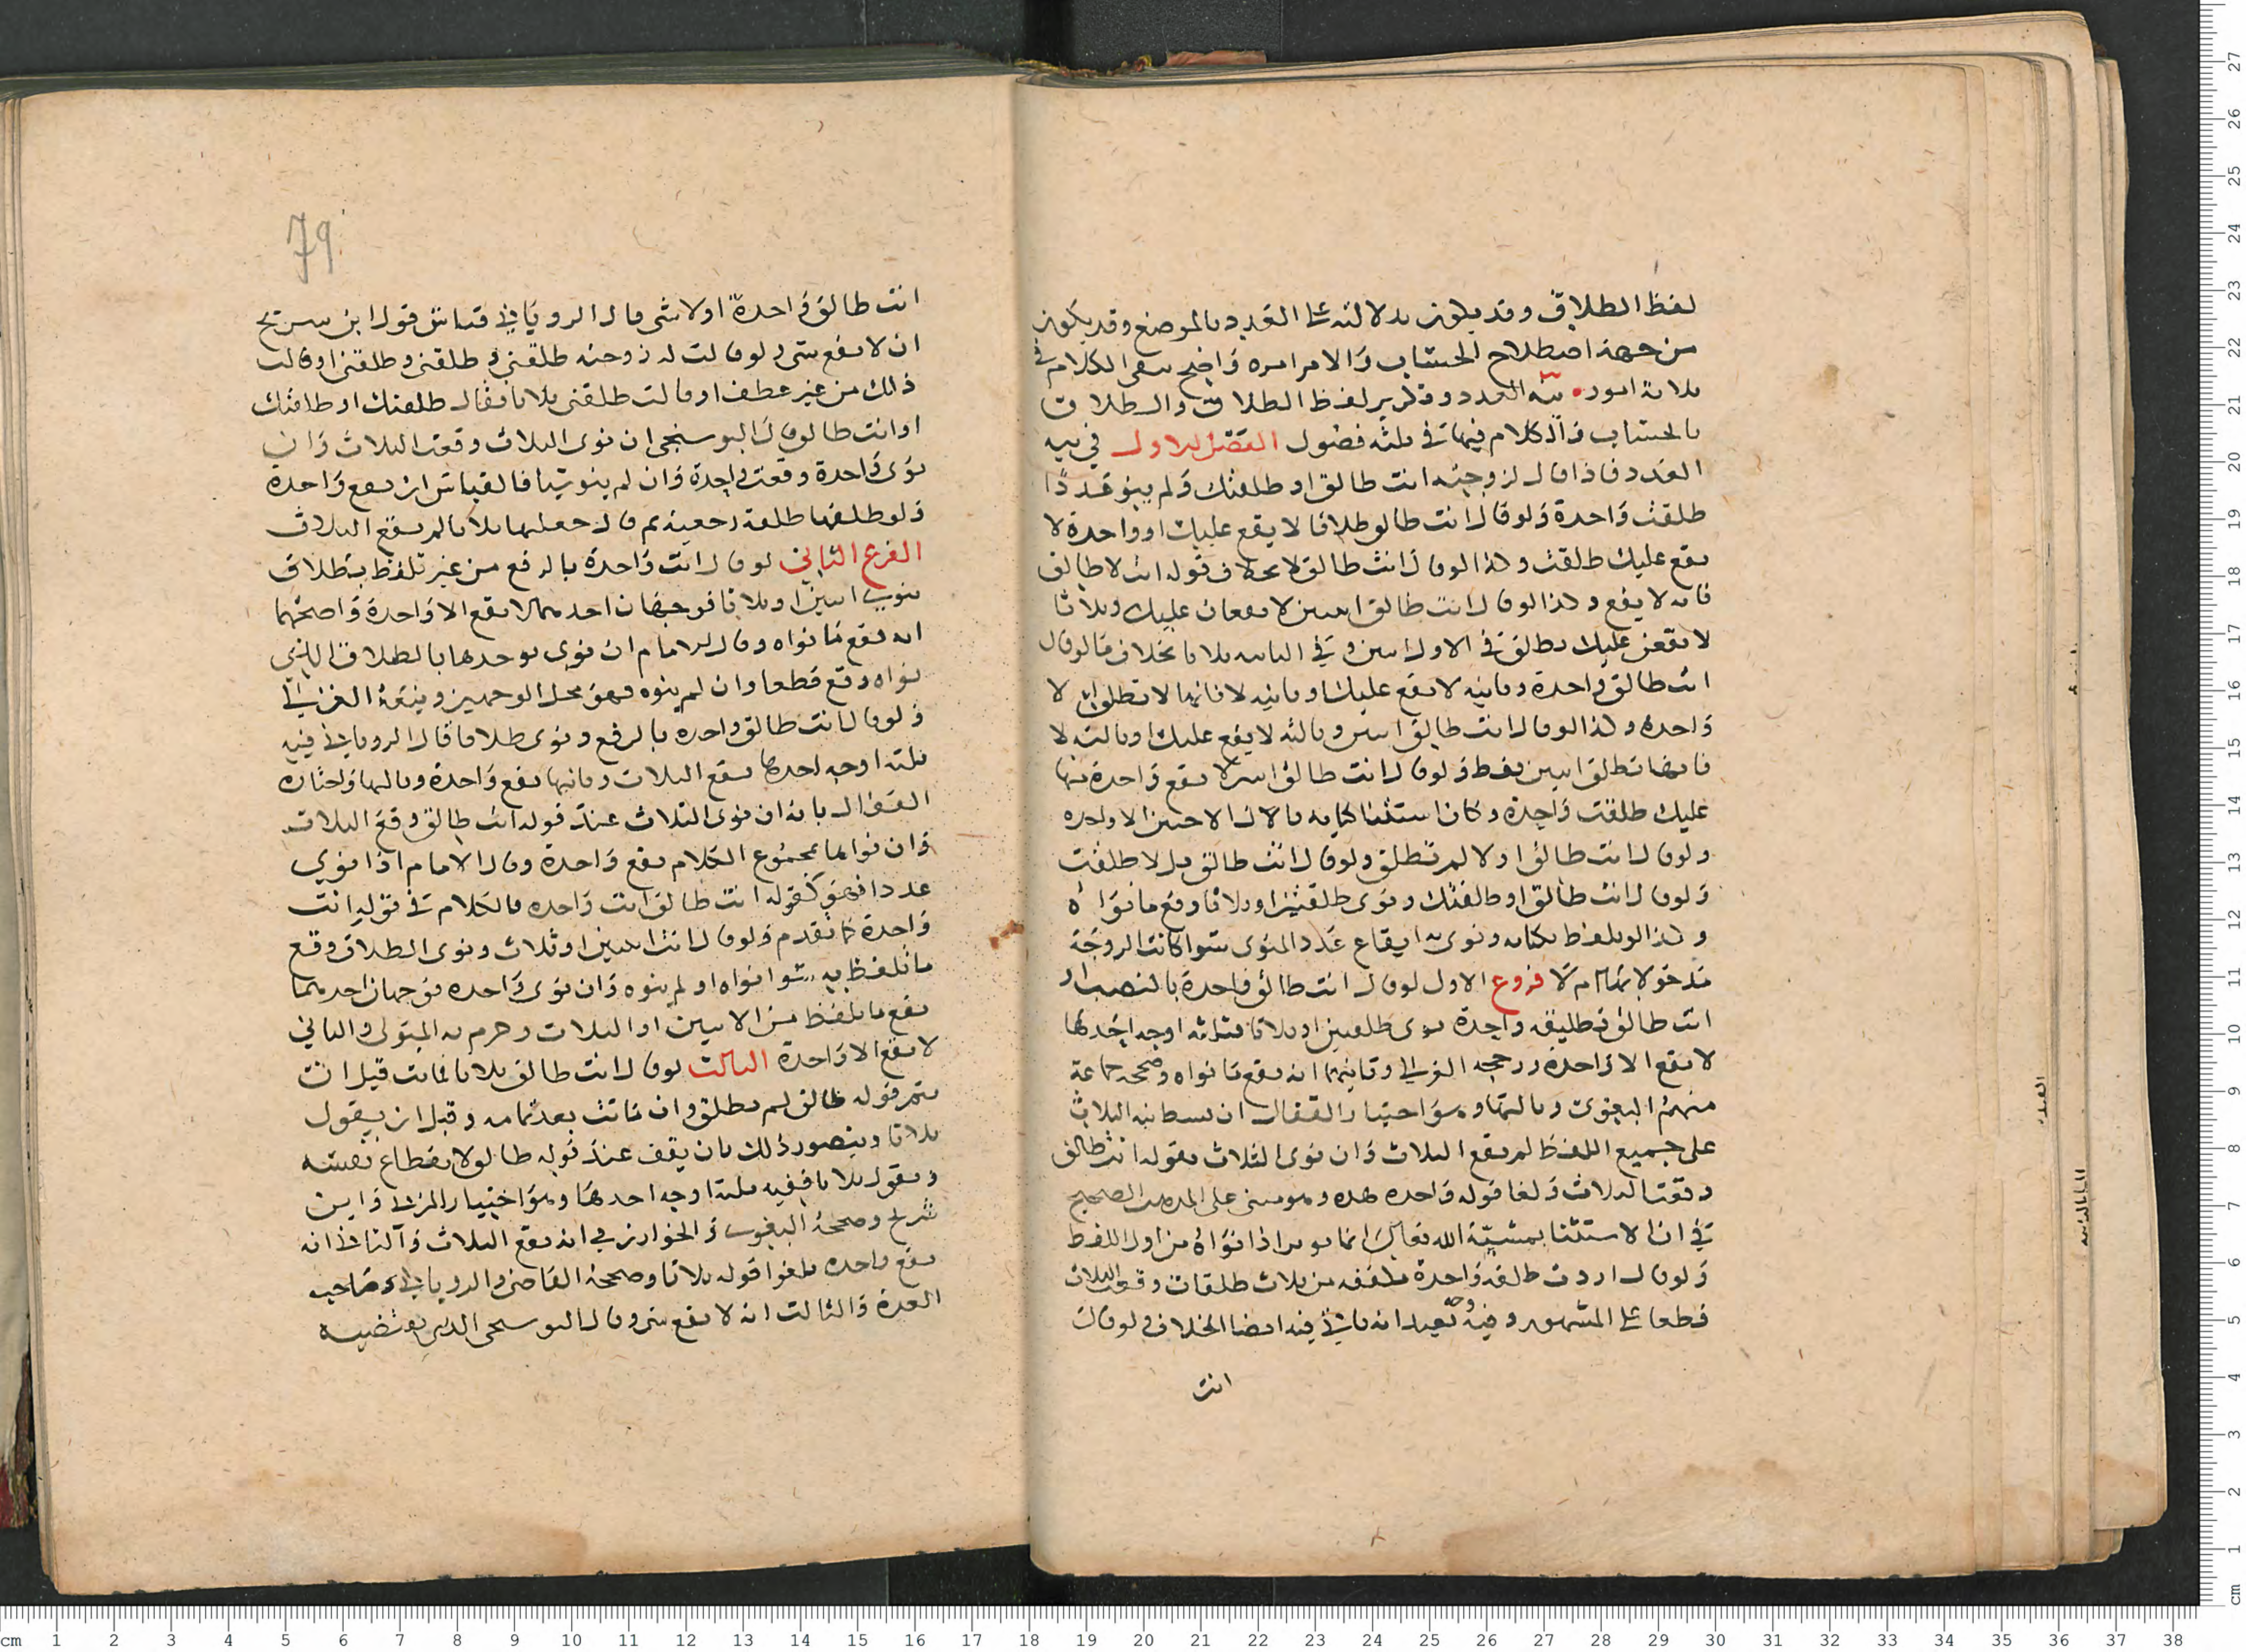 لفظ الطلاق وقد يكون بدلالته على العدد بالموضع وقد يكون
من جهة اصطلاح الحساب والامر امره واضح بقى الكلام في
ثلاثة امور نية العدد وتكرير لفظ الطلاق والطلاق
بالحساب والكلام فيها في ثلثة فصول الفصل الاول في نية
العدد فاذا قال لزوجته انت طالق او طلقتك ولم ينو عددًا
طلقت واحدة ولو قال انت طالق طلاقا لا يقع عليك او واحدة لا
يقع عليك طلقت وكذا لو قال انت طالق لا بخلاف قوله انت لا طالق
فانه لا يقع وكذا لو قال انت طالق اثنتين لا يقعان عليك وثلاثا
لا يقعن عليك يطلق في الاول اثنتين وفي الثانية ثلاثا بخلاف ما لو قال
انت طالق واحدة وثانية لا يقع عليك او ثانية لا فانها لا تطلق الا
واحدة وكذا لو قال انت طالق اثنتين وثالثة لا يقع عليك او ثالثة لا
فانها تطلق اثنتين فقط ولو قال انت طالق اثنتين لا يقع واحدة منها
عليك طلقت واحدة وكان استثنا كانه قال الا
ولو قال انت طالق او لا لم تطلق ولو قال انت طالق بل لا طلقت
ولو قال انت طالق او طلقتك ونوى طلقتين او ثلاثا وقع ما نواه
وكذا لو تلفظ بكناية ونوى بها ايقاع عدد المنوى سوا كانت الزوجة
مدخولا بها ام لا فروع الاول لو قال انت طالق واحدة بالنصب او
انت طالق تطليقة واحدة ونوى طلقتين او ثلاثا فثلثة اوجه احدها
لا يقع الا واحدة ورجحه الغزالي وثانيهما انه يقع ما نواه وصححه جماعة
منهم البغوى وثالثها وهو اختيار القفال ان بسط نية الثلاث
على جميع اللفظ لم يقع الثلاث وان نوى الثلاث بقوله انت طالق
وقعت الثلاث ولغا قوله واحدة وهو مبنى على المذهب الصحيح
في ان الاستثنا بمشيّة الله تعالى انما يؤثر اذا نواه من اول اللفظ
ولو قال اردت طلقة واحدة ملفقة من ثلاث طلقات وقعت الثلاث
قطعا على المشهور وفيه وجه بعيد انه ياتي فيه ايضا الخلاف ولو قال
انت
79
انت طالق واحدة او لا شى قال الروياني قياس قول ابن سريج
ان لا يقع شى ولو قالت له زوجته طلقني وطلقني وطلقني او قالت
ذلك من غير عطف او قالت طلقني ثلاثا فقال طلقتك او طلقتك
او انت طالق قال البوسنجى ان نوى الثلاث وقعت الثلاث وان
نوى واحدة وقعت واحدة وان لم ينو شيا فالقياس ان يقع واحدة
ولو طلقها طلقة رجعية ثم قال جعلتها ثلاثا لم يقع الثلاث
الفرع الثاني لو قال انت واحدة بالرفع من غير تلفظ بطلاق
ينوى اثنتين او ثلاثا فوجهان احدهما لا يقع الا واحدة واصحهما
انه يقع ما نواه وقال الامام ان نوى توحدها بالطلاق الذي
نواه وقع قطعا وان لم ينوه فهو محل الوجهين وتبعه الغزالي
ولو قال انت طالق واحدة بالرفع ونوى طلاقا قال الروياني فيه
ثلثة اوجه احدها يقع الثلاث وثانيها يقع واحدة وثالثها واختاره
القفال بانه ان نوى الثلاث عند قوله انت طالق وقع الثلاث
وان نواها بمجموع الكلام يقع واحدة وقال الامام اذا نوى
عددا فهو كقوله انت طالق انت واحدة فالكلام في قوله انت
واحدة كما تقدم ولو قال انت اثنتين او ثلاث ونوى الطلاق وقع
ما تلفظ به سوا نواه او لم ينوه وان نوى واحدة فوجهان احدهما
يقع ما تلفظ من الاثنتين او الثلاث وجزم به المتولى والثاني
لا يقع الا واحدة الثالث لو قال انت طالق ثلاثا فماتت قبل ان
يتم قوله طالق لم تطلق وان ماتت بعد تمامه وقبل ان يقول
ثلاثا ويتصور ذلك بان يقف عند قوله طالق لانقطاع نفسه
ويقول ثلاثا ففيه ثلثة اوجه احدها وهو اختيار المزنى وابن
سريج وصححه البغوى والخوارزمي انه يقع الثلاث والثاني انه
يقع واحدة ويلغوا قوله ثلاثا وصححه القاضى والروياني وصاحب
العدة والثالث انه لا يقع شى وقال البوسنجى الذى يقتضيه